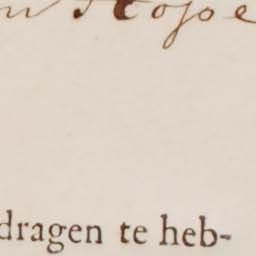 Hope
dragen te heb-